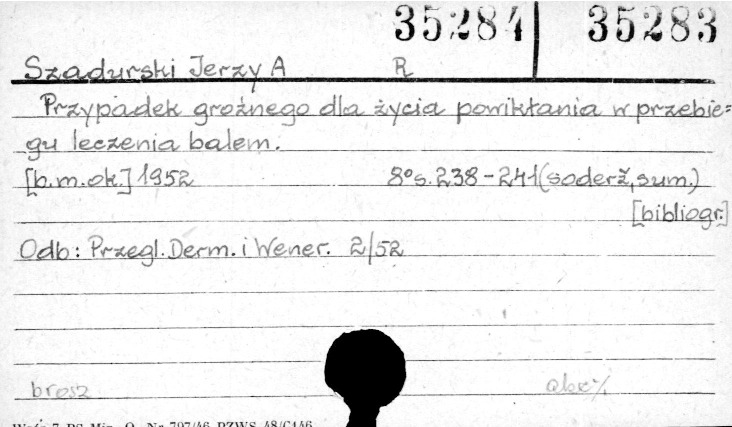 35284 35283
Szadurski Jerzy A R
Przypadek groźnego dla życia powikłania w przebie=
gu leczenia balem.
[b.m.ok.] 1952 8° s. 238-241 (soderž, sum.)
[bibliogr.]
Odb: Przegl. Derm. i Wener. 2/52
brosz
Nr 797/46 PZWS